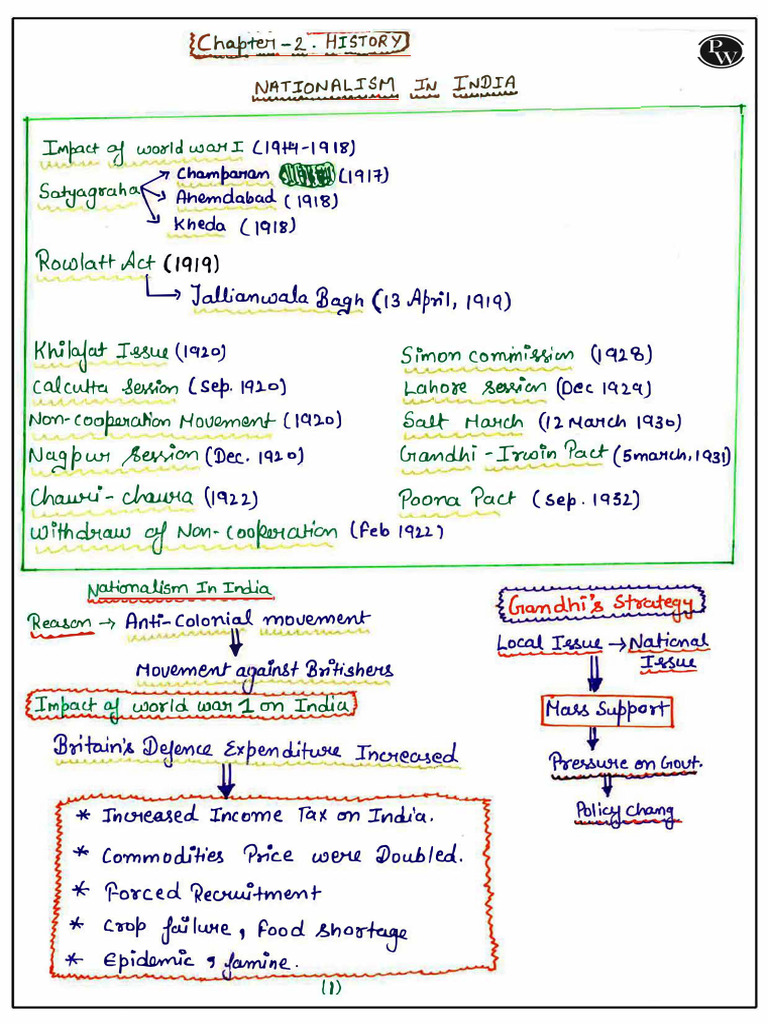 Chapter-2. HISTORY
PW
NATIONALISM IN INDIA
Impact of world war I (1914-1918)
Satyagraha
Champaran (1917)
Ahemdabad (1918)
Kheda (1918)
Rowlatt Act (1919)
Jallianwala Bagh (13 April, 1919)
Khilafat Issue (1920)
Calcutta Session (Sep. 1920)
Non-cooperation Movement (1920)
Nagpur Session (Dec. 1920)
Chauri-chaura (1922)
Withdraw of Non-Cooperation (Feb 1922)
Simon commission (1928)
Lahore Session (Dec 1929)
Salt March (12 March 1930)
Gandhi-Irwin Pact (5 march, 1931)
Poona Pact (Sep. 1932)
Nationalism In India
Reason → Anti-Colonial movement
Movement against Britishers
Impact of world war 1 on India
Britain's Defence Expenditure Increased
* Increased Income Tax on India.
* Commodities Price were Doubled.
* Forced Recruitment
* Crop failure, Food shortage
* Epidemic, famine.
Gandhi's Strategy
Local Issue → National
Issue
Mass Support
Pressure on Govt.
Policy Chang
(1)